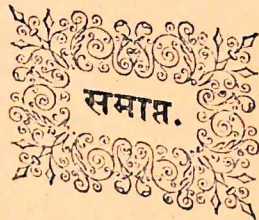 समाप्त.